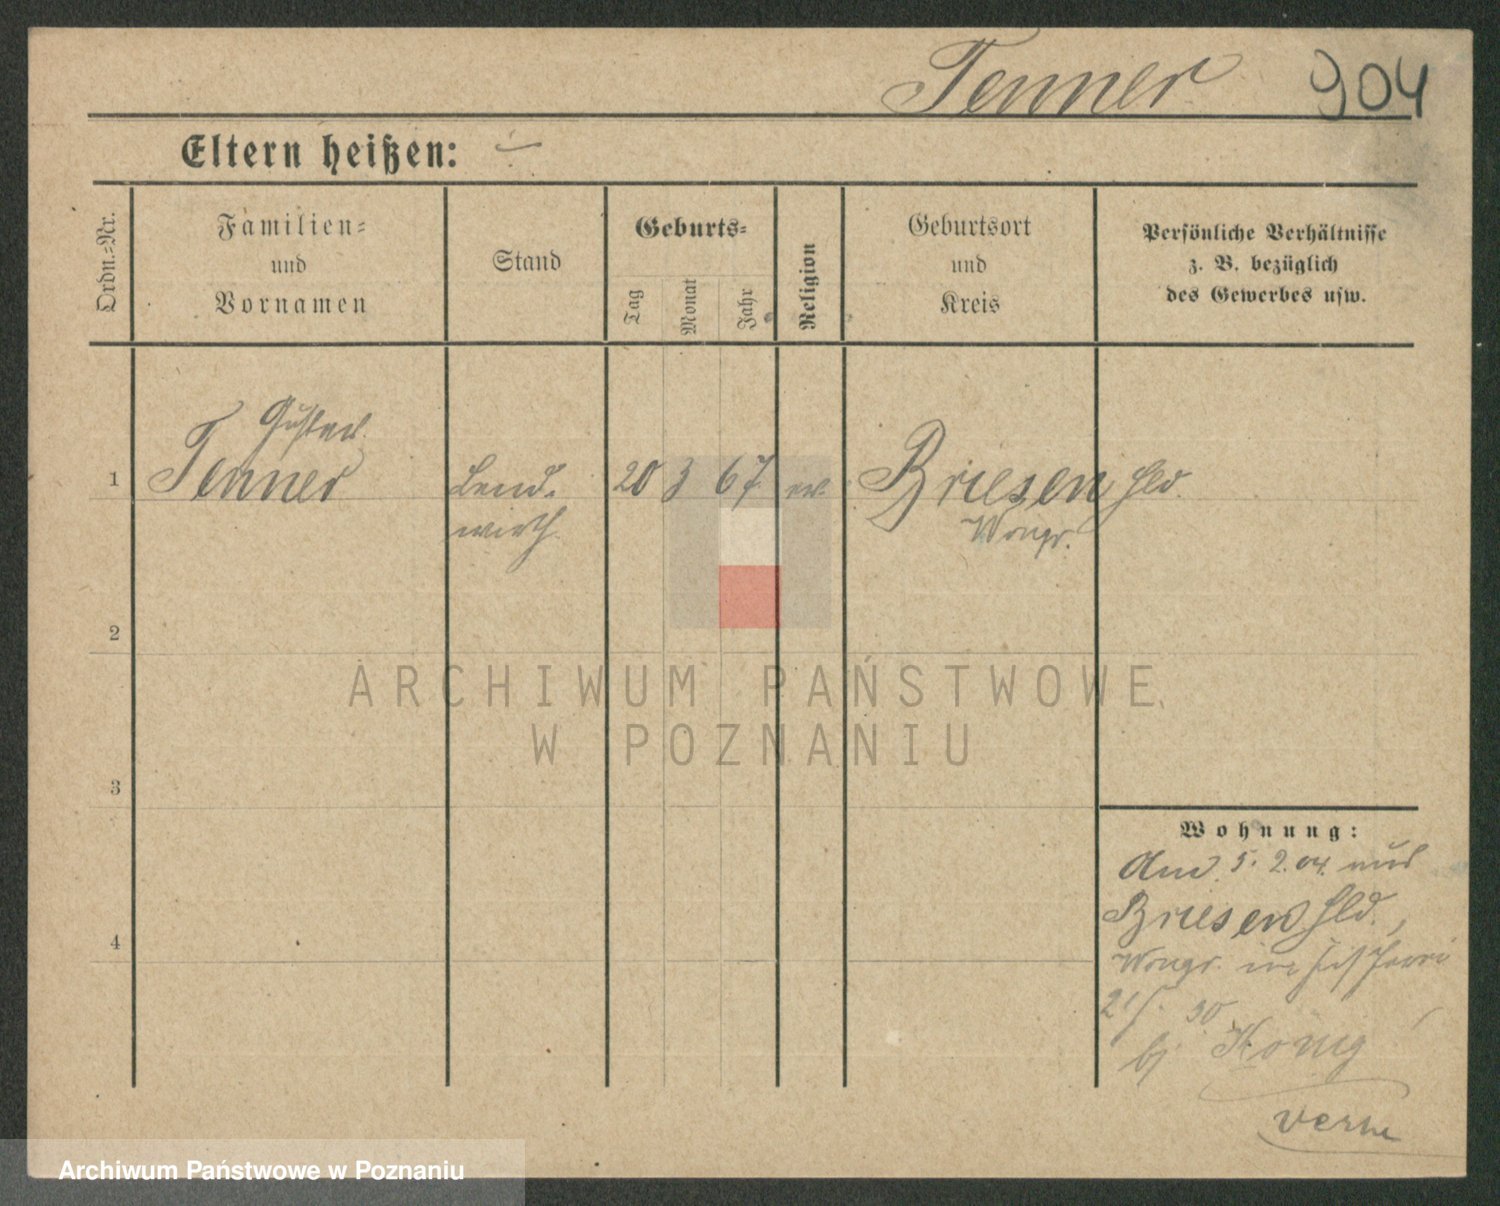 Tenner 904
Eltern heißen: -
Ordn.-Nr.
Familien-
und
Vornamen
Stand
Geburts-
Tag
Monat
Jahr
Religion
Geburtsort
und
Kreis
Persönliche Verhältnisse
z. B. bezüglich
des Gewerbes usw.
Gustav
1 Tenner Land- 20 3 67 ev. Briesen Hld.
wirth Wongr.
2
ARCHIWUM PAŃSTWOWE
W POZNANIU
3
Wohnung:
5. 2. 04. aus
Briesen Hld.,
4
Wongr. in
30
bj König
Archiwum Państwowe w Poznaniu